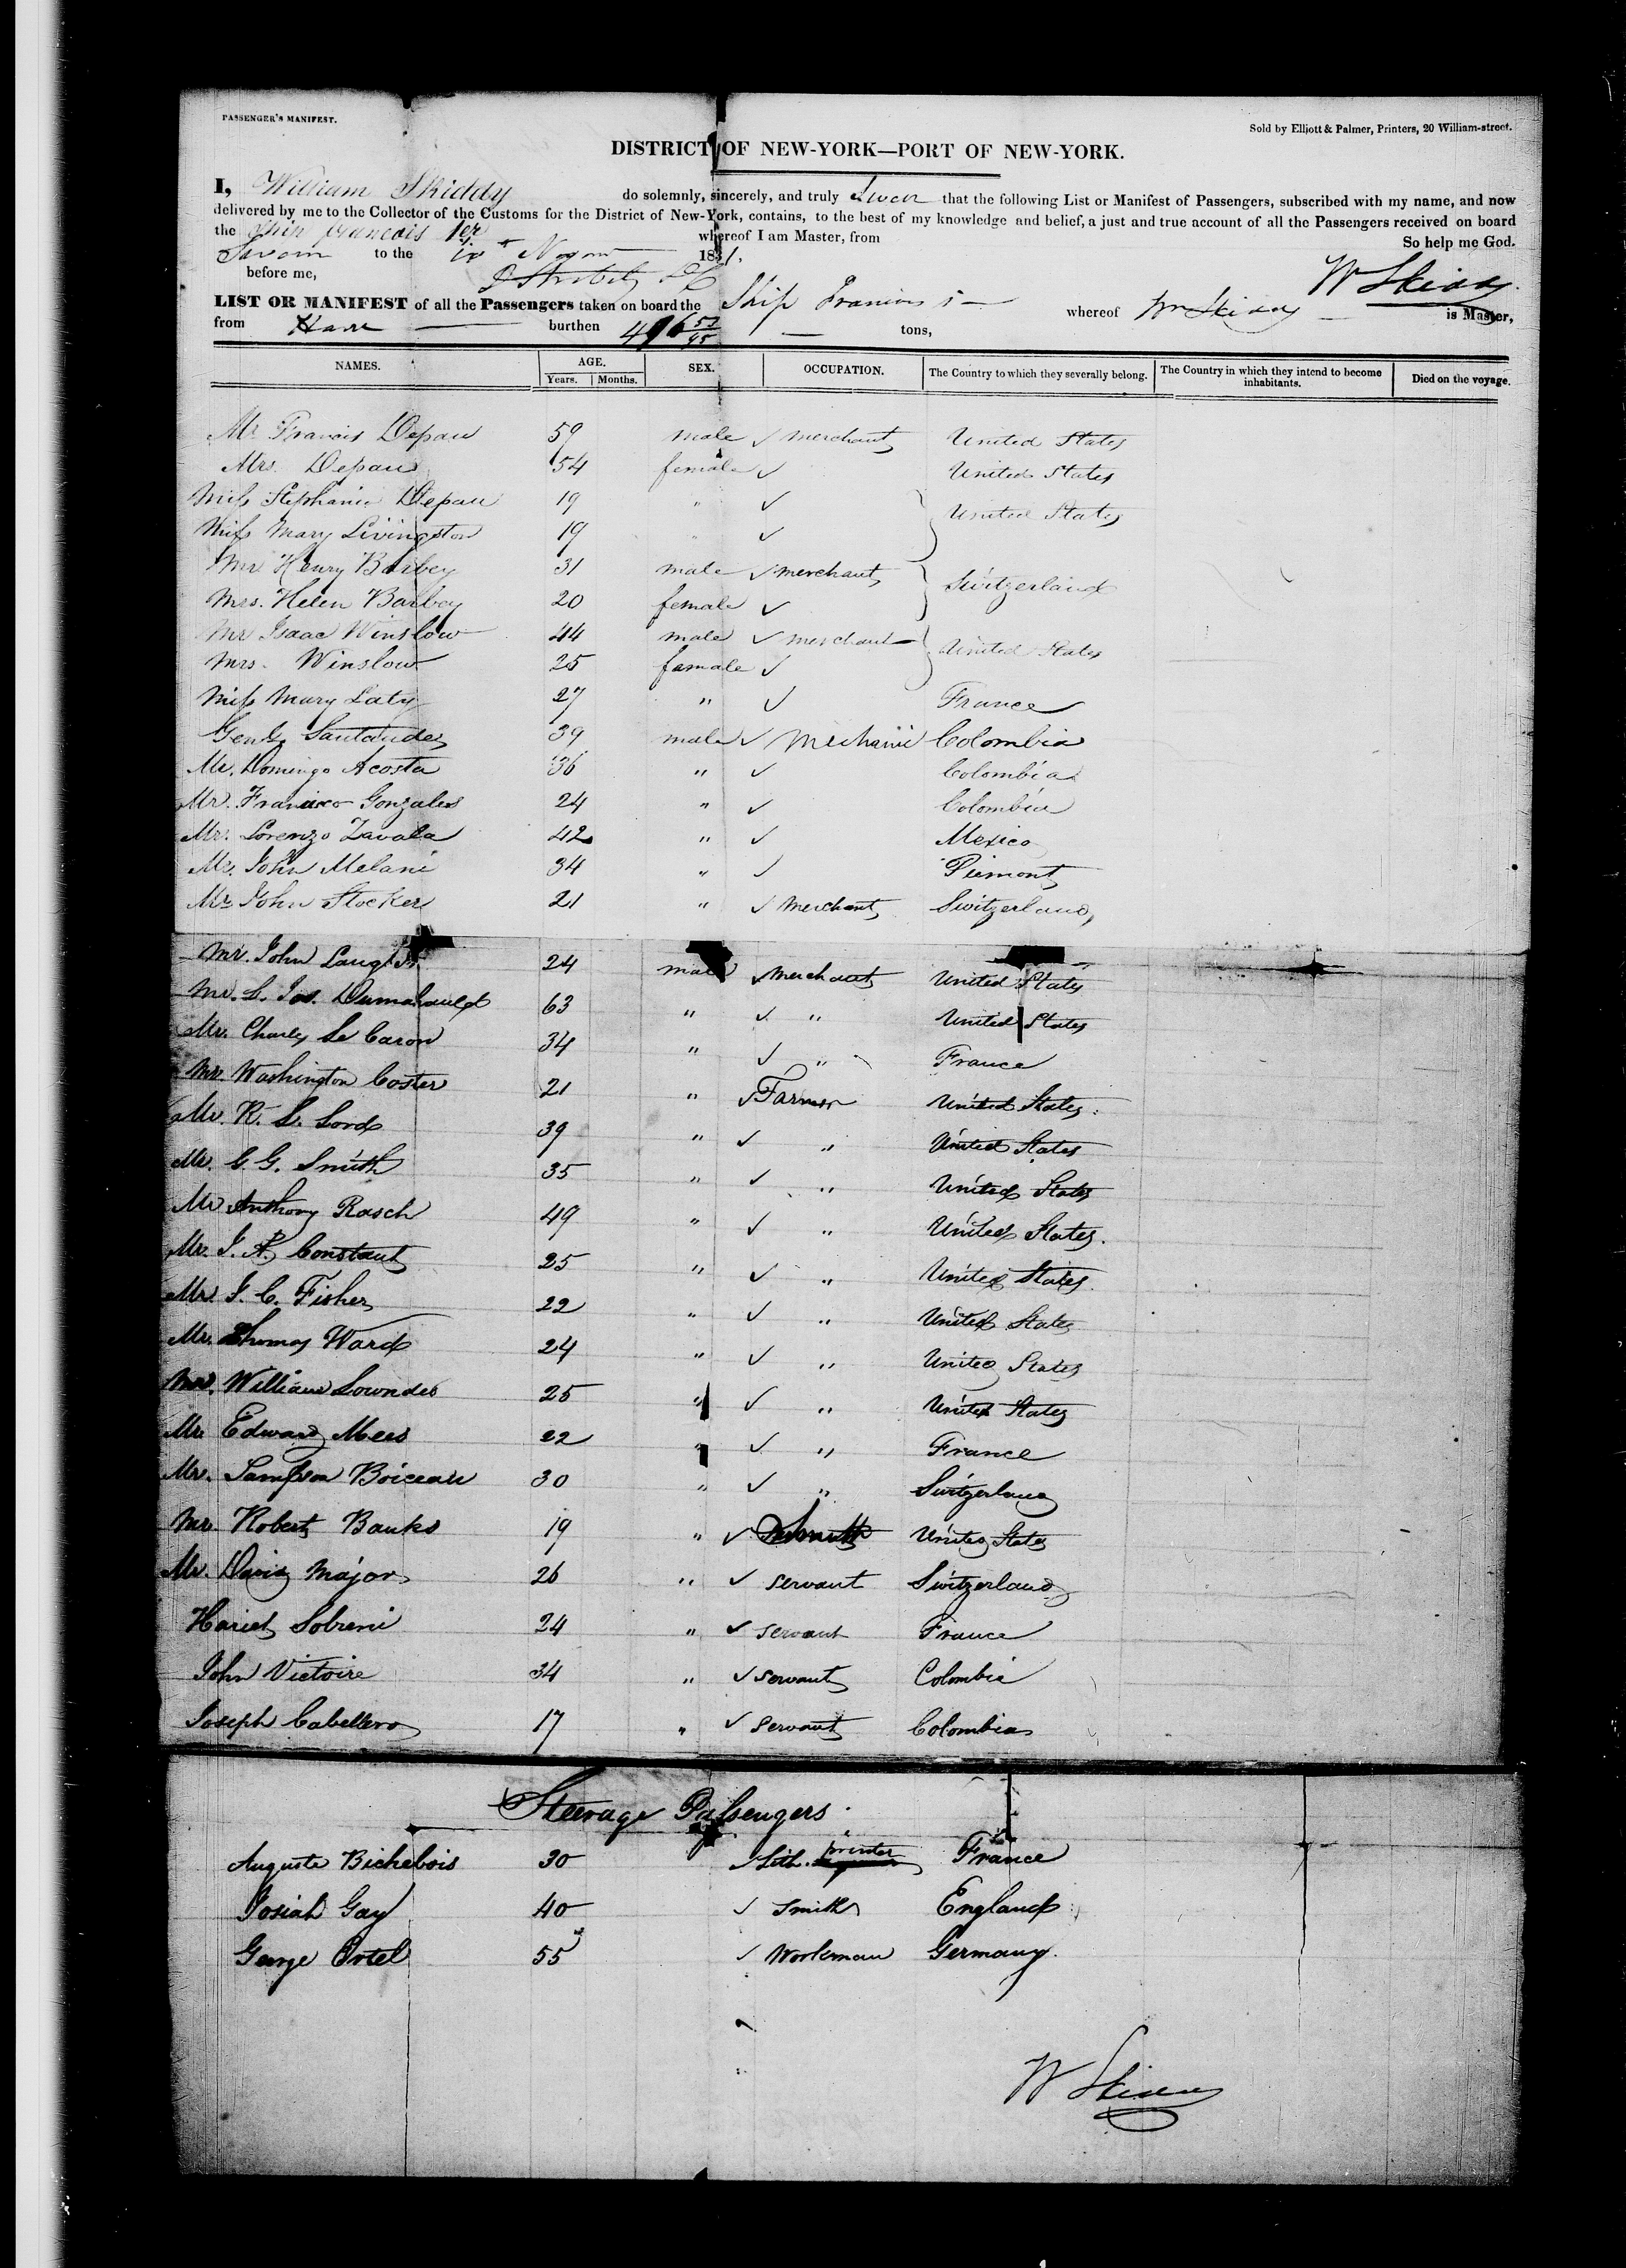 PASSENGER'S MANIFEST.
Sold by Elliott & Palmer, Printers, 20 William-street.
DISTRICT OF NEW-YORK—PORT OF NEW-YORK.
I, William Skiddy do solemnly, sincerely, and truly Swear that the following List or Manifest of Passengers, subscribed with my name, and now
delivered by me to the Collector of the Customs for the District of New-York, contains, to the best of my knowledge and belief, a just and true account of all the Passengers received on board
the Ship francois 1er whereof I am Master, from
So help me God.
Sworn to the 1831.
before me,
W Skiddy
LIST OR MANIFEST of all the Passengers taken on board the Ship Francois 1 whereof Wm Skiddy is Master,
from Havre burthen 496 52/95 tons,
NAMES. AGE. Years. Months. SEX. OCCUPATION. The Country to which they severally belong. The Country in which they intend to become inhabitants. Died on the voyage.
Mr Francis Depau 59 male merchant United States
Mrs. Depau 54 female United States
Miss Stephanie Depau 19 " United States
Miss Mary Livingston 19 "
Mr Henry Barbey 31 male merchant Switzerland
Mrs. Helen Barbey 20 female
Mr Isaac Winslow 44 male merchant United States
Mrs. Winslow 25 female
Miss Mary Laty 27 " France
Genl. Santander 39 male Mechanic Colombia
Mr. Domingo Acosta 36 " Colombia
Mr. Francisco Gonzales 24 " Colombia
Mr. Lorenzo Zavala 42 " Mexico
Mr. John Melani 34 " Piemont
Mr. John Stocker 21 " Merchant Switzerland,
Mr. John 24 male merchant United States
Mr. L. Jos. 63 " " United States
Mr. Charles Le Caron 34 " " France
Mr. Washington Coster 21 " Farmer United States.
Mr. R. L. Lord 39 " " United States
Mr. C. G. Smith 35 " " United States
Mr Anthony Rasch 49 " " United States.
Mr. J. A. Constant 25 " " United States.
Mr. J. C. Fisher 22 " " United States
Mr. Thomas Ward 24 " " United States
Mr. William Lowndes 25 " " United States
Mr. Edward Mees 22 " " France
Mr. Sampson Boiceau 30 " " Switzerland
Mr. Robert Banks 19 " United States
Mr. David Major 26 " servant Switzerland
Hariet Sobreni 24 " servant France
John Victoire 34 " servant Colombia
Joseph Cabellero 17 " servant Colombia
Steerage Passengers.
Auguste Bichebois 30 Lith. printer France
Josiah Gay 40 Smith England
George Ortel 55 Workman Germany.
W Skiddy